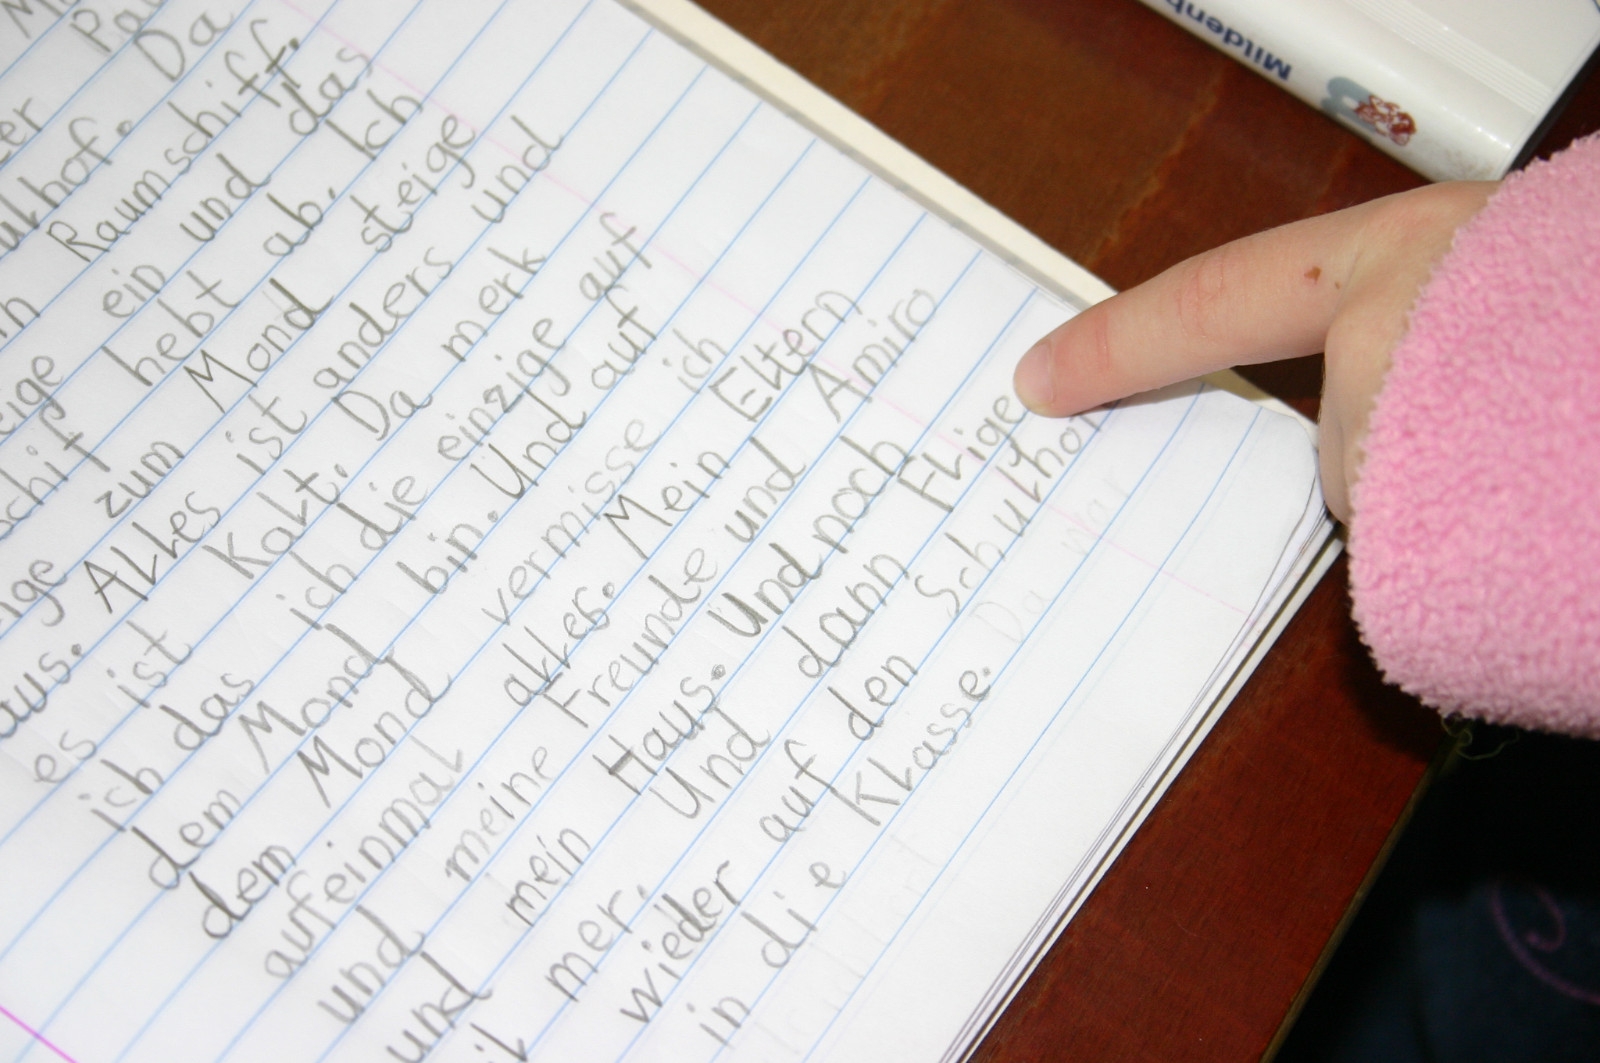 Da
ulhof.
Raumschiff.
ein und das
hebt ab. Ich
zum Mond steige
aus. Alles ist anders und
es ist Kalt. Da merk
ich das ich die einzige auf
dem Mond bin. Und auf
dem Mond vermisse ich
aufeinmal alles. Mein Eltern
und meine Freunde und Amiro
und mein Haus. Und noch
mer. Und dann Flige
wieder auf den Schulhof
in die Klasse. Da war
Mildenb